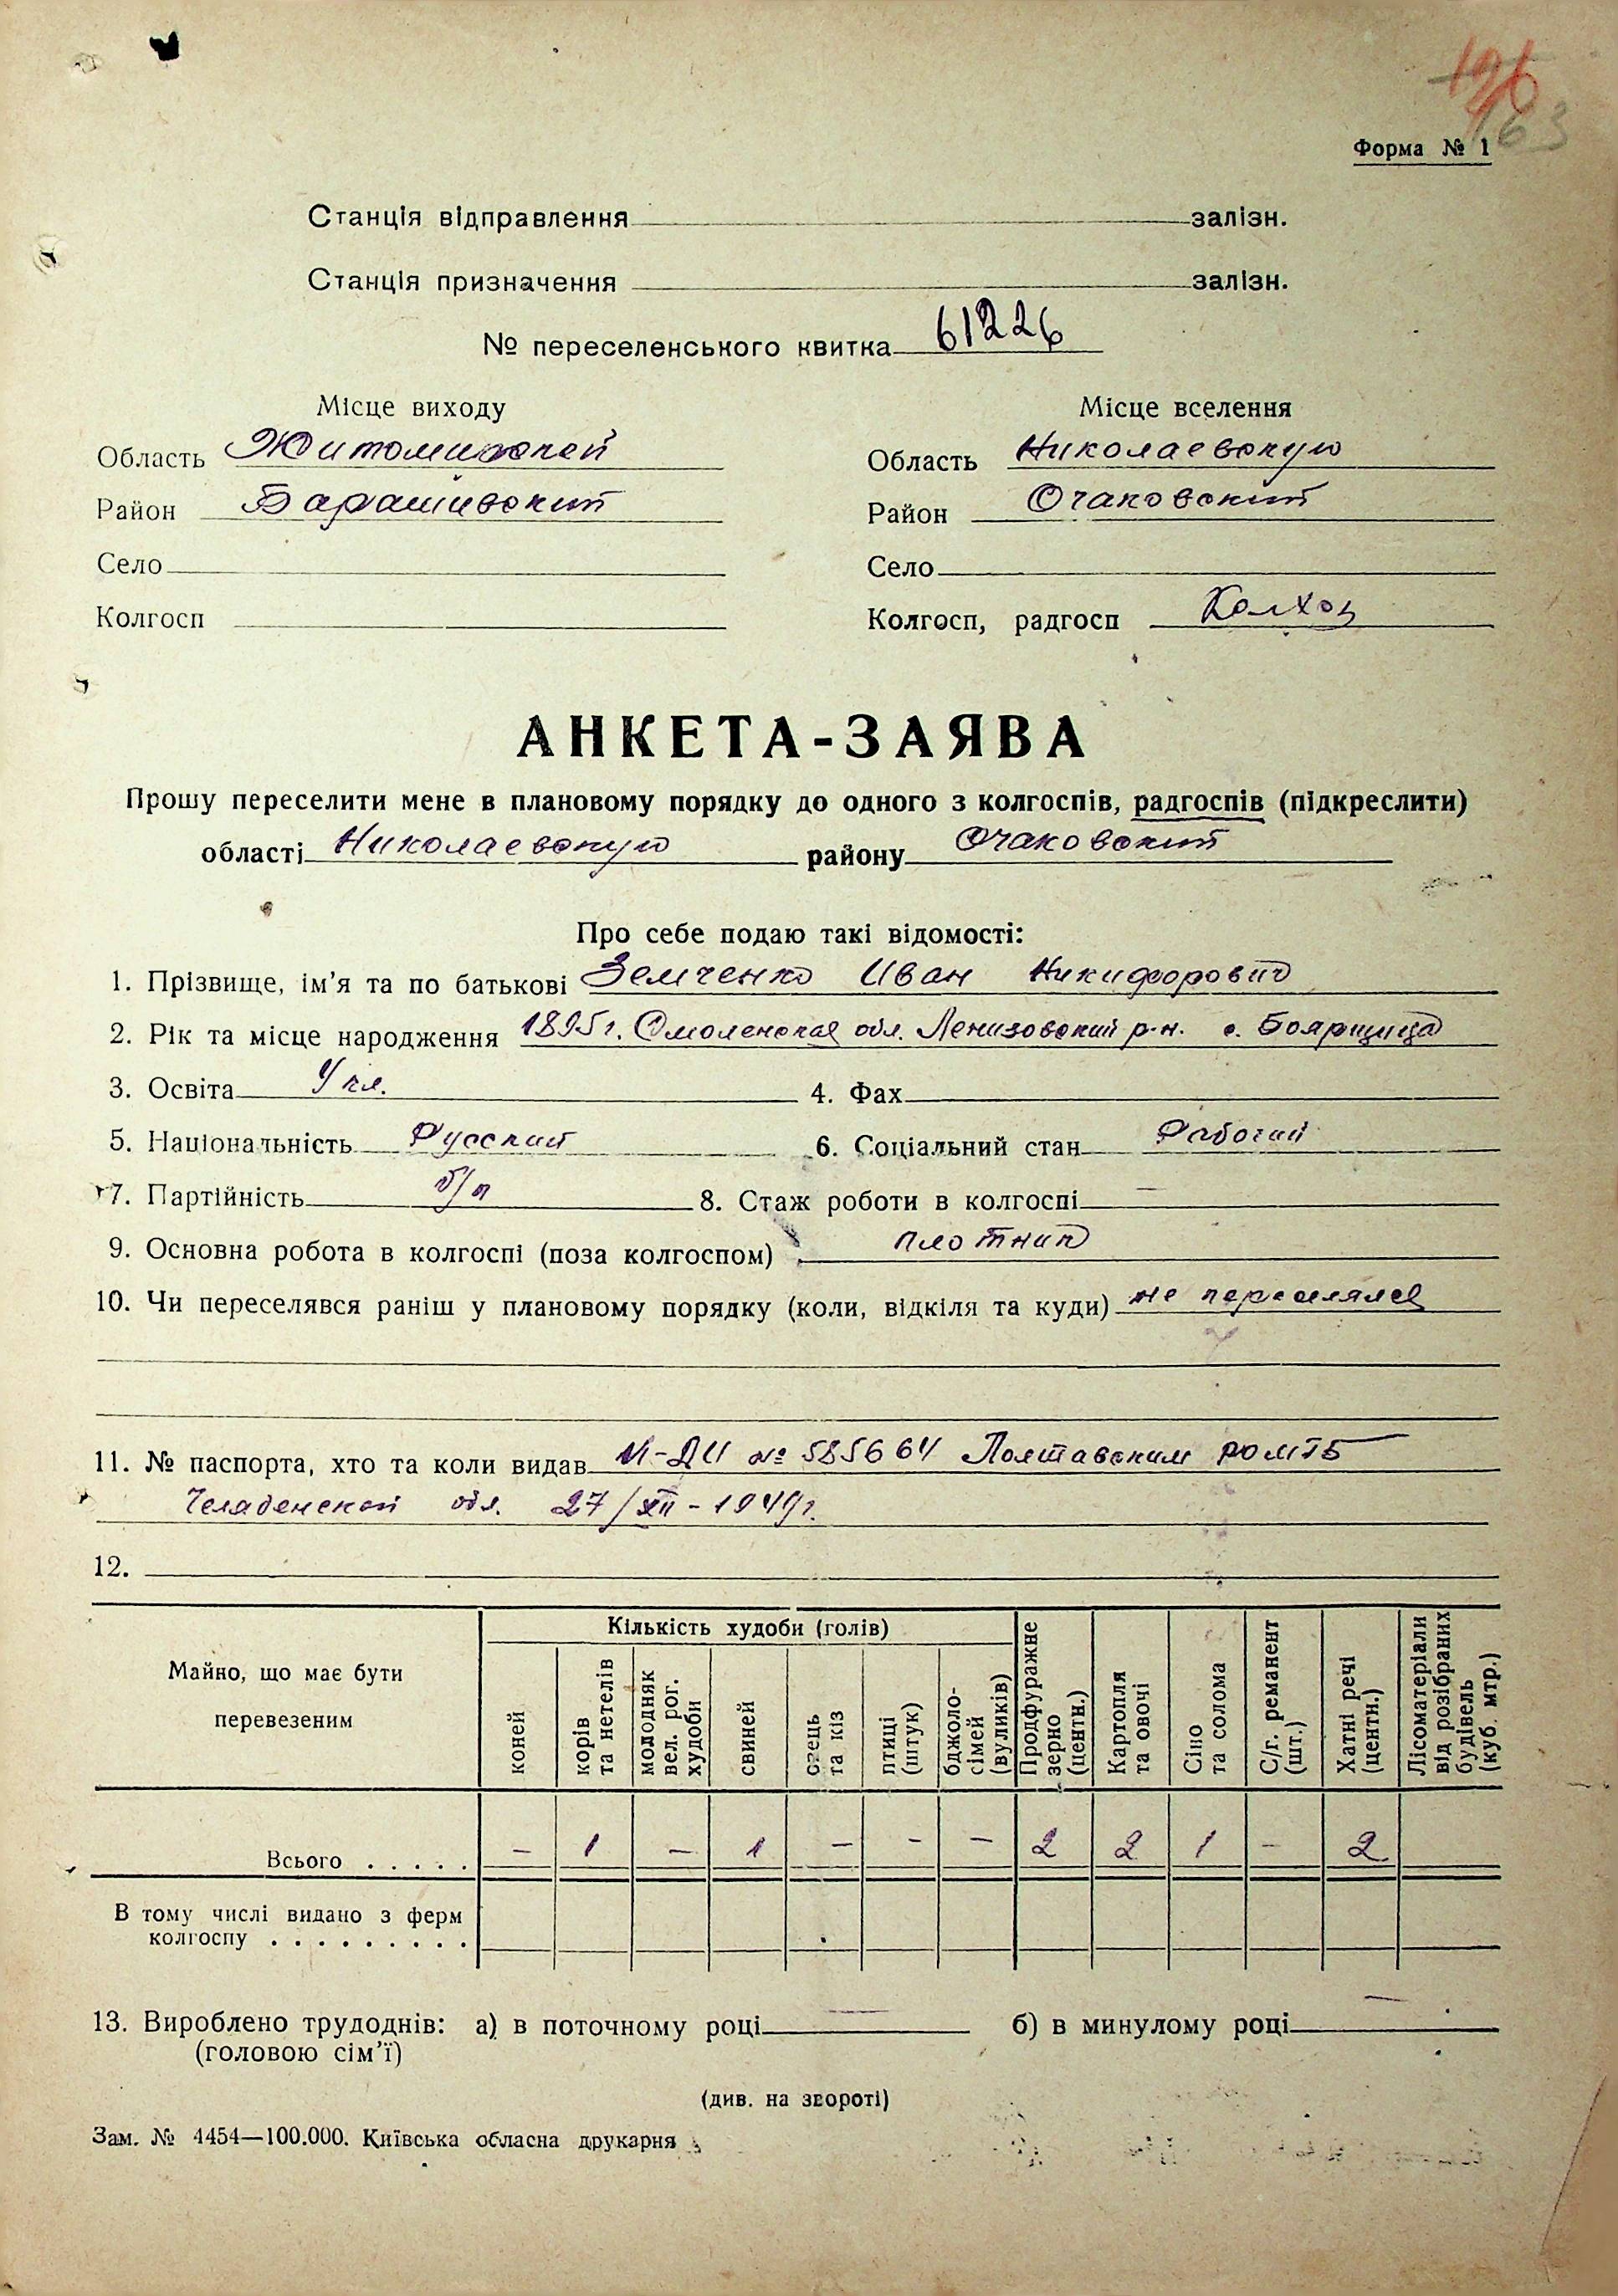 196
163
Форма № 1
Станція відправлення залізн.
Станція призначення залізн.
№ переселенського квитка 61226
Місце виходу Місце вселення
Область Житомирской Область Николаевскую
Район Барашивский Район Очаковский
Село Село
Колгосп Колгосп, радгосп Колхоз
АНКЕТА-ЗАЯВА
Прошу переселити мене в плановому порядку до одного з колгоспів, радгоспів (підкреслити)
області Николаевскую району Очаковский
Про себе подаю такі відомості:
1. Прізвище, ім'я та по батькові Земченко Иван Никифорович
2. Рік та місце народження 1895г. Смоленская обл. р-н. с. Боярщица
3. Освіта 4 кл. 4. Фах
5. Національність Русский 6. Соціальний стан Рабочий
7. Партійність б/п 8. Стаж роботи в колгоспі —
9. Основна робота в колгоспі (поза колгоспом) плотник
10. Чи переселявся раніш у плановому порядку (коли, відкіля та куди) не переселялся
11. № паспорта, хто та коли видав № 585664 Полтавским РОМГБ
обл. 27/XII-1949г.
12.
Майно, що має бути перевезеним
Кількість худоби (голів)
коней
корів та нетелів
молодняк вел. рог. худоби
свиней
овець та кіз
птиці (штук)
бджоло-сімей (вуликів)
Продфуражне зерно (центн.)
Картопля та овочі
Сіно та солома
С/г. реманент (шт.)
Хатні речі (центн.)
Лісоматеріали від розібраних будівель (куб. мтр.)
Всього . . . . . — 1 — 1 — — — 2 2 1 — 2
В тому числі видано з ферм
колгоспу . . . . . . . . .
13. Вироблено трудоднів: а) в поточному році — б) в минулому році —
(головою сім'ї)
(див. на звороті)
Зам. № 4454—100.000. Київська обласна друкарня